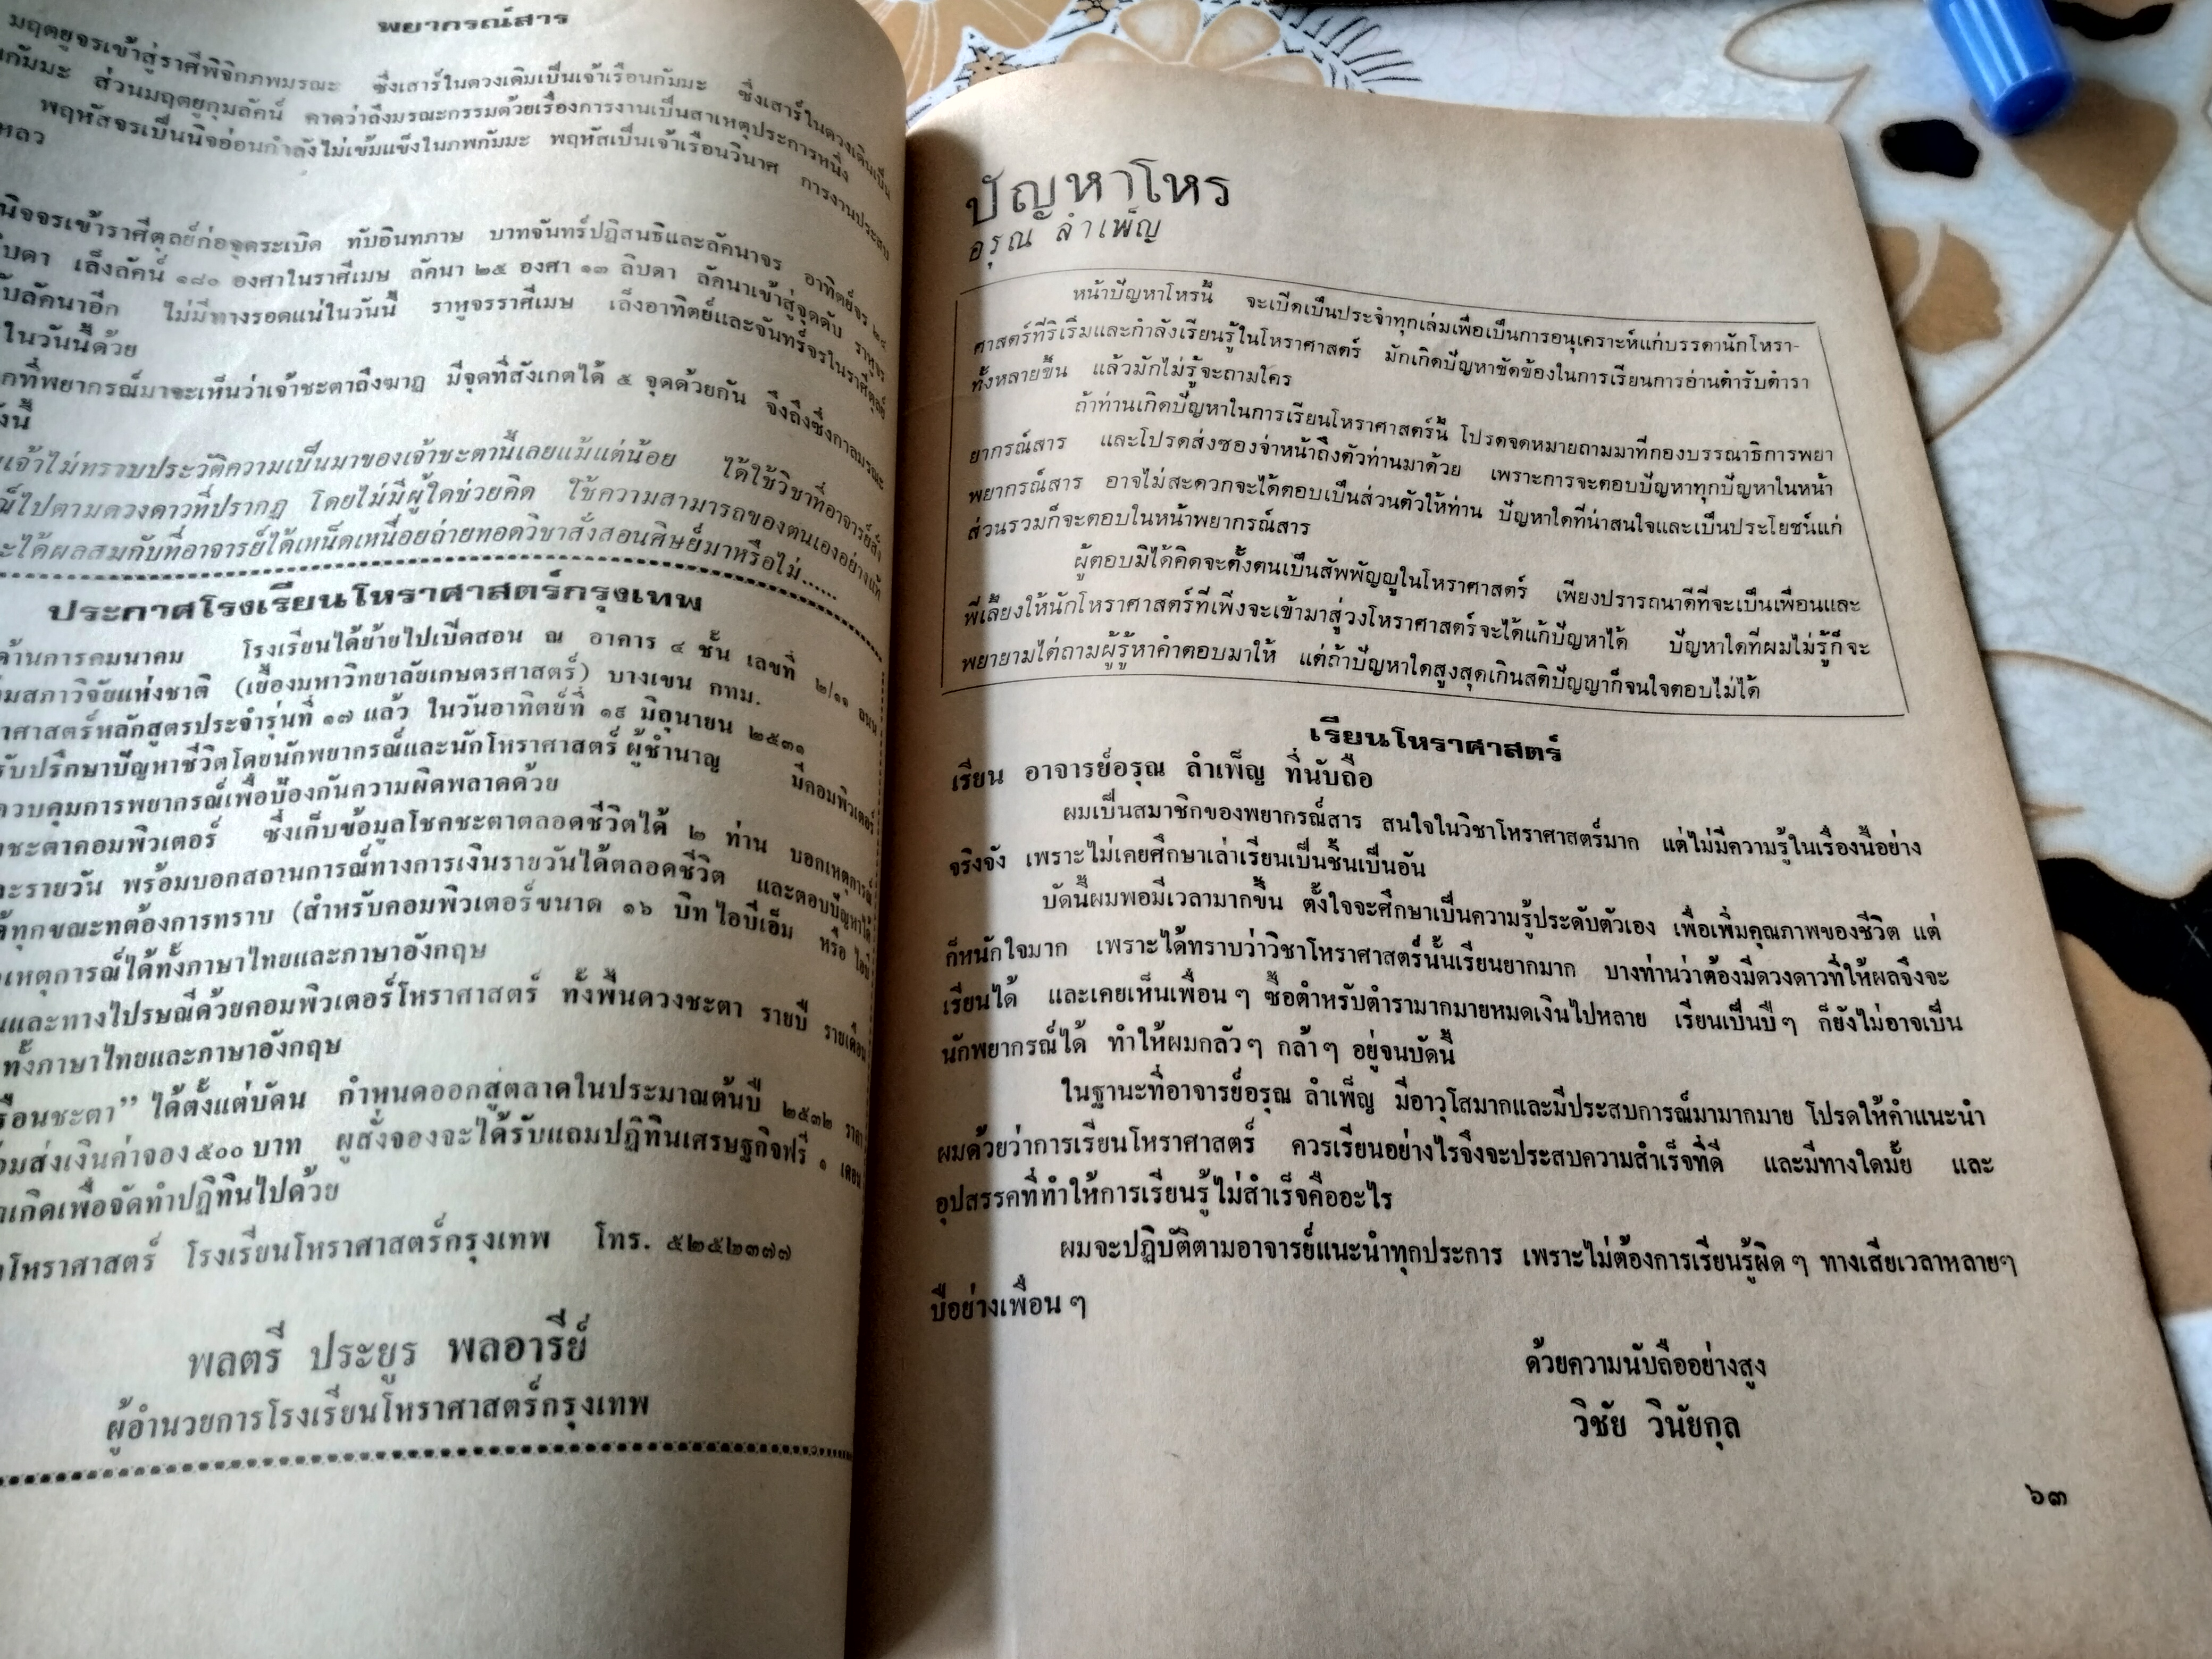 พยากรณ์สาร
มฤตยูจรเข้าสู่ราศีพิจิกภพมรณะ ซึ่งเสาร์ในดวงเดิมเป็นเจ้าเรือนกัมมะ ซึ่งเสาร์ในดวงเดิมเป็น
กัมมะ ส่วนมฤตยูกุมลัคน์ คาดว่าถึงมรณะกรรมด้วยเรื่องการงานเป็นสาเหตุประการหนึ่ง
พฤหัสจรเป็นนิจอ่อนกำลังไม่เข้มแข็งในภพกัมมะ พฤหัสเป็นเจ้าเรือนวินาศ การงานประสบ
หลว
นิจจรเข้าราศีตุลย์ก่อจุดระเบิด ทับอินทภาษ บาทจันทร์ปฏิสนธิและลัคนาจร อาทิตย์จร ๒๔
ลิบดา เล็งลัคน์ ๑๘๐ องศาในราศีเมษ ลัคนา ๒๕ องศา ๑๓ ลิบดา ลัคนาเข้าสู่จุดดับ ราหูจร
ับลัคนาอีก ไม่มีทางรอดแน่ในวันนี้ ราหูจรราศีเมษ เล็งอาทิตย์และจันทร์จรในราศีตุลย์
ในวันนี้ด้วย
กที่พยากรณ์มาจะเห็นว่าเจ้าชะตาถึงฆาฏ มีจุดที่สังเกตได้ ๕ จุดด้วยกัน จึงถึงซึ่งกาลมรณะ
ังนี้
เจ้าไม่ทราบประวัติความเป็นมาของเจ้าชะตานี้เลยแม้แต่น้อย ได้ใช้วิชาที่อาจารย์สั่ง
ณ์ไปตามดวงดาวที่ปรากฏ โดยไม่มีผู้ใดช่วยคิด ใช้ความสามารถของตนเองอย่างแท้
ะได้ผลสมกับที่อาจารย์ได้เหน็ดเหนื่อยถ่ายทอดวิชาสั่งสอนศิษย์มาหรือไม่......
ประกาศโรงเรียนโหราศาสตร์กรุงเทพ
ด้านการคมนาคม โรงเรียนได้ย้ายไปเปิดสอน ณ อาคาร ๔ ชั้น เลขที่ ๒/๑๑ ถนน
มสภาวิจัยแห่งชาติ (เยื้องมหาวิทยาลัยเกษตรศาสตร์) บางเขน กทม.
าศาสตร์หลักสูตรประจำรุ่นที่ ๑๗ แล้ว ในวันอาทิตย์ที่ ๑๙ มิถุนายน ๒๕๓๑
รับปรึกษาปัญหาชีวิตโดยนักพยากรณ์และนักโหราศาสตร์ ผู้ชำนาญ มีคอมพิวเตอร์
ควบคุมการพยากรณ์เพื่อป้องกันความผิดพลาดด้วย
ชะตาคอมพิวเตอร์ ซึ่งเก็บข้อมูลโชคชะตาตลอดชีวิตได้ ๒ ท่าน บอกเหตุการณ์
ะรายวัน พร้อมบอกสถานการณ์ทางการเงินรายวันได้ตลอดชีวิต และตอบปัญหาได้
ทุกขณะทต้องการทราบ (สำหรับคอมพิวเตอร์ขนาด ๑๖ บิท ไอบีเอ็ม หรือ ไอบี
เหตุการณ์ได้ทั้งภาษาไทยและภาษาอังกฤษ
และทางไปรษณีด้วยคอมพิวเตอร์โหราศาสตร์ ทั้งพื้นดวงชะตา รายปี รายเดือน
ทั้งภาษาไทยและภาษาอังกฤษ
รือนชะตา” ได้ตั้งแต่บัดน กำหนดออกสู่ตลาดในประมาณต้นปี ๒๕๓๒ ราคา
มส่งเงินค่าจอง ๕๐๐ บาท ผู้สั่งจองจะได้รับแถมปฏิทินเศรษฐกิจฟรี ๑ เดือน
เกิดเพื่อจัดทำปฏิทินไปด้วย
โหราศาสตร์ โรงเรียนโหราศาสตร์กรุงเทพ โทร. ๕๒๕๒๓๗๗
พลตรี ประยูร พลอารีย์
ผู้อำนวยการโรงเรียนโหราศาสตร์กรุงเทพ
ปัญหาโหร
อรุณ ลำเพ็ญ
หน้าปัญหาโหรนี้ จะเปิดเป็นประจำทุกเล่มเพื่อเป็นการอนุเคราะห์แก่บรรดานักโหรา-
ศาสตร์ที่ริเริ่มและกำลังเรียนรู้ในโหราศาสตร์ มักเกิดปัญหาขัดข้องในการเรียนการอ่านตำรับตำรา
ทั้งหลายขึ้น แล้วมักไม่รู้จะถามใคร
ถ้าท่านเกิดปัญหาในการเรียนโหราศาสตร์นี้ โปรดจดหมายถามมาที่กองบรรณาธิการพยา
ยากรณ์สาร และโปรดส่งซองจ่าหน้าถึงตัวท่านมาด้วย เพราะการจะตอบปัญหาทุกปัญหาในหน้า
พยากรณ์สาร อาจไม่สะดวกจะได้ตอบเป็นส่วนตัวให้ท่าน ปัญหาใดที่น่าสนใจและเป็นประโยชน์แก่
ส่วนรวมก็จะตอบในหน้าพยากรณ์สาร
ผู้ตอบมิได้คิดจะตั้งตนเป็นสัพพัญญูในโหราศาสตร์ เพียงปรารถนาดีที่จะเป็นเพื่อนและ
พี่เลี้ยงให้นักโหราศาสตร์ที่เพิ่งจะเข้ามาสู่วงโหราศาสตร์จะได้แก้ปัญหาได้ ปัญหาใดที่ผมไม่รู้ก็จะ
พยายามไต่ถามผู้รู้หาคำตอบมาให้ แต่ถ้าปัญหาใดสูงสุดเกินสติปัญญาก็จนใจตอบไม่ได้
เรียนโหราศาสตร์
เรียน อาจารย์อรุณ ลำเพ็ญ ที่นับถือ
ผมเป็นสมาชิกของพยากรณ์สาร สนใจในวิชาโหราศาสตร์มาก แต่ไม่มีความรู้ในเรื่องนี้อย่าง
จริงจัง เพราะไม่เคยศึกษาเล่าเรียนเป็นชิ้นเป็นอัน
บัดนี้ผมพอมีเวลามากขึ้น ตั้งใจจะศึกษาเป็นความรู้ประดับตัวเอง เพื่อเพิ่มคุณภาพของชีวิต แต่
ก็หนักใจมาก เพราะได้ทราบว่าวิชาโหราศาสตร์นั้นเรียนยากมาก บางท่านว่าต้องมีดวงดาวที่ให้ผลจึงจะ
เรียนได้ และเคยเห็นเพื่อน ๆ ซื้อตำหรับตำรามากมายหมดเงินไปหลาย เรียนเป็นปี ๆ ก็ยังไม่อาจเป็น
นักพยากรณ์ได้ ทำให้ผมกลัว ๆ กล้า ๆ อยู่จนบัดนี้
ในฐานะที่อาจารย์อรุณ ลำเพ็ญ มีอาวุโสมากและมีประสบการณ์มามากมาย โปรดให้คำแนะนำ
ผมด้วยว่าการเรียนโหราศาสตร์ ควรเรียนอย่างไรจึงจะประสบความสำเร็จที่ดี และมีทางใดมั้ย และ
อุปสรรคที่ทำให้การเรียนรู้ไม่สำเร็จคืออะไร
ผมจะปฏิบัติตามอาจารย์แนะนำทุกประการ เพราะไม่ต้องการเรียนรู้ผิด ๆ ทางเสียเวลาหลายๆ
ปีอย่างเพื่อน ๆ
ด้วยความนับถืออย่างสูง
วิชัย วินัยกุล
๖๓